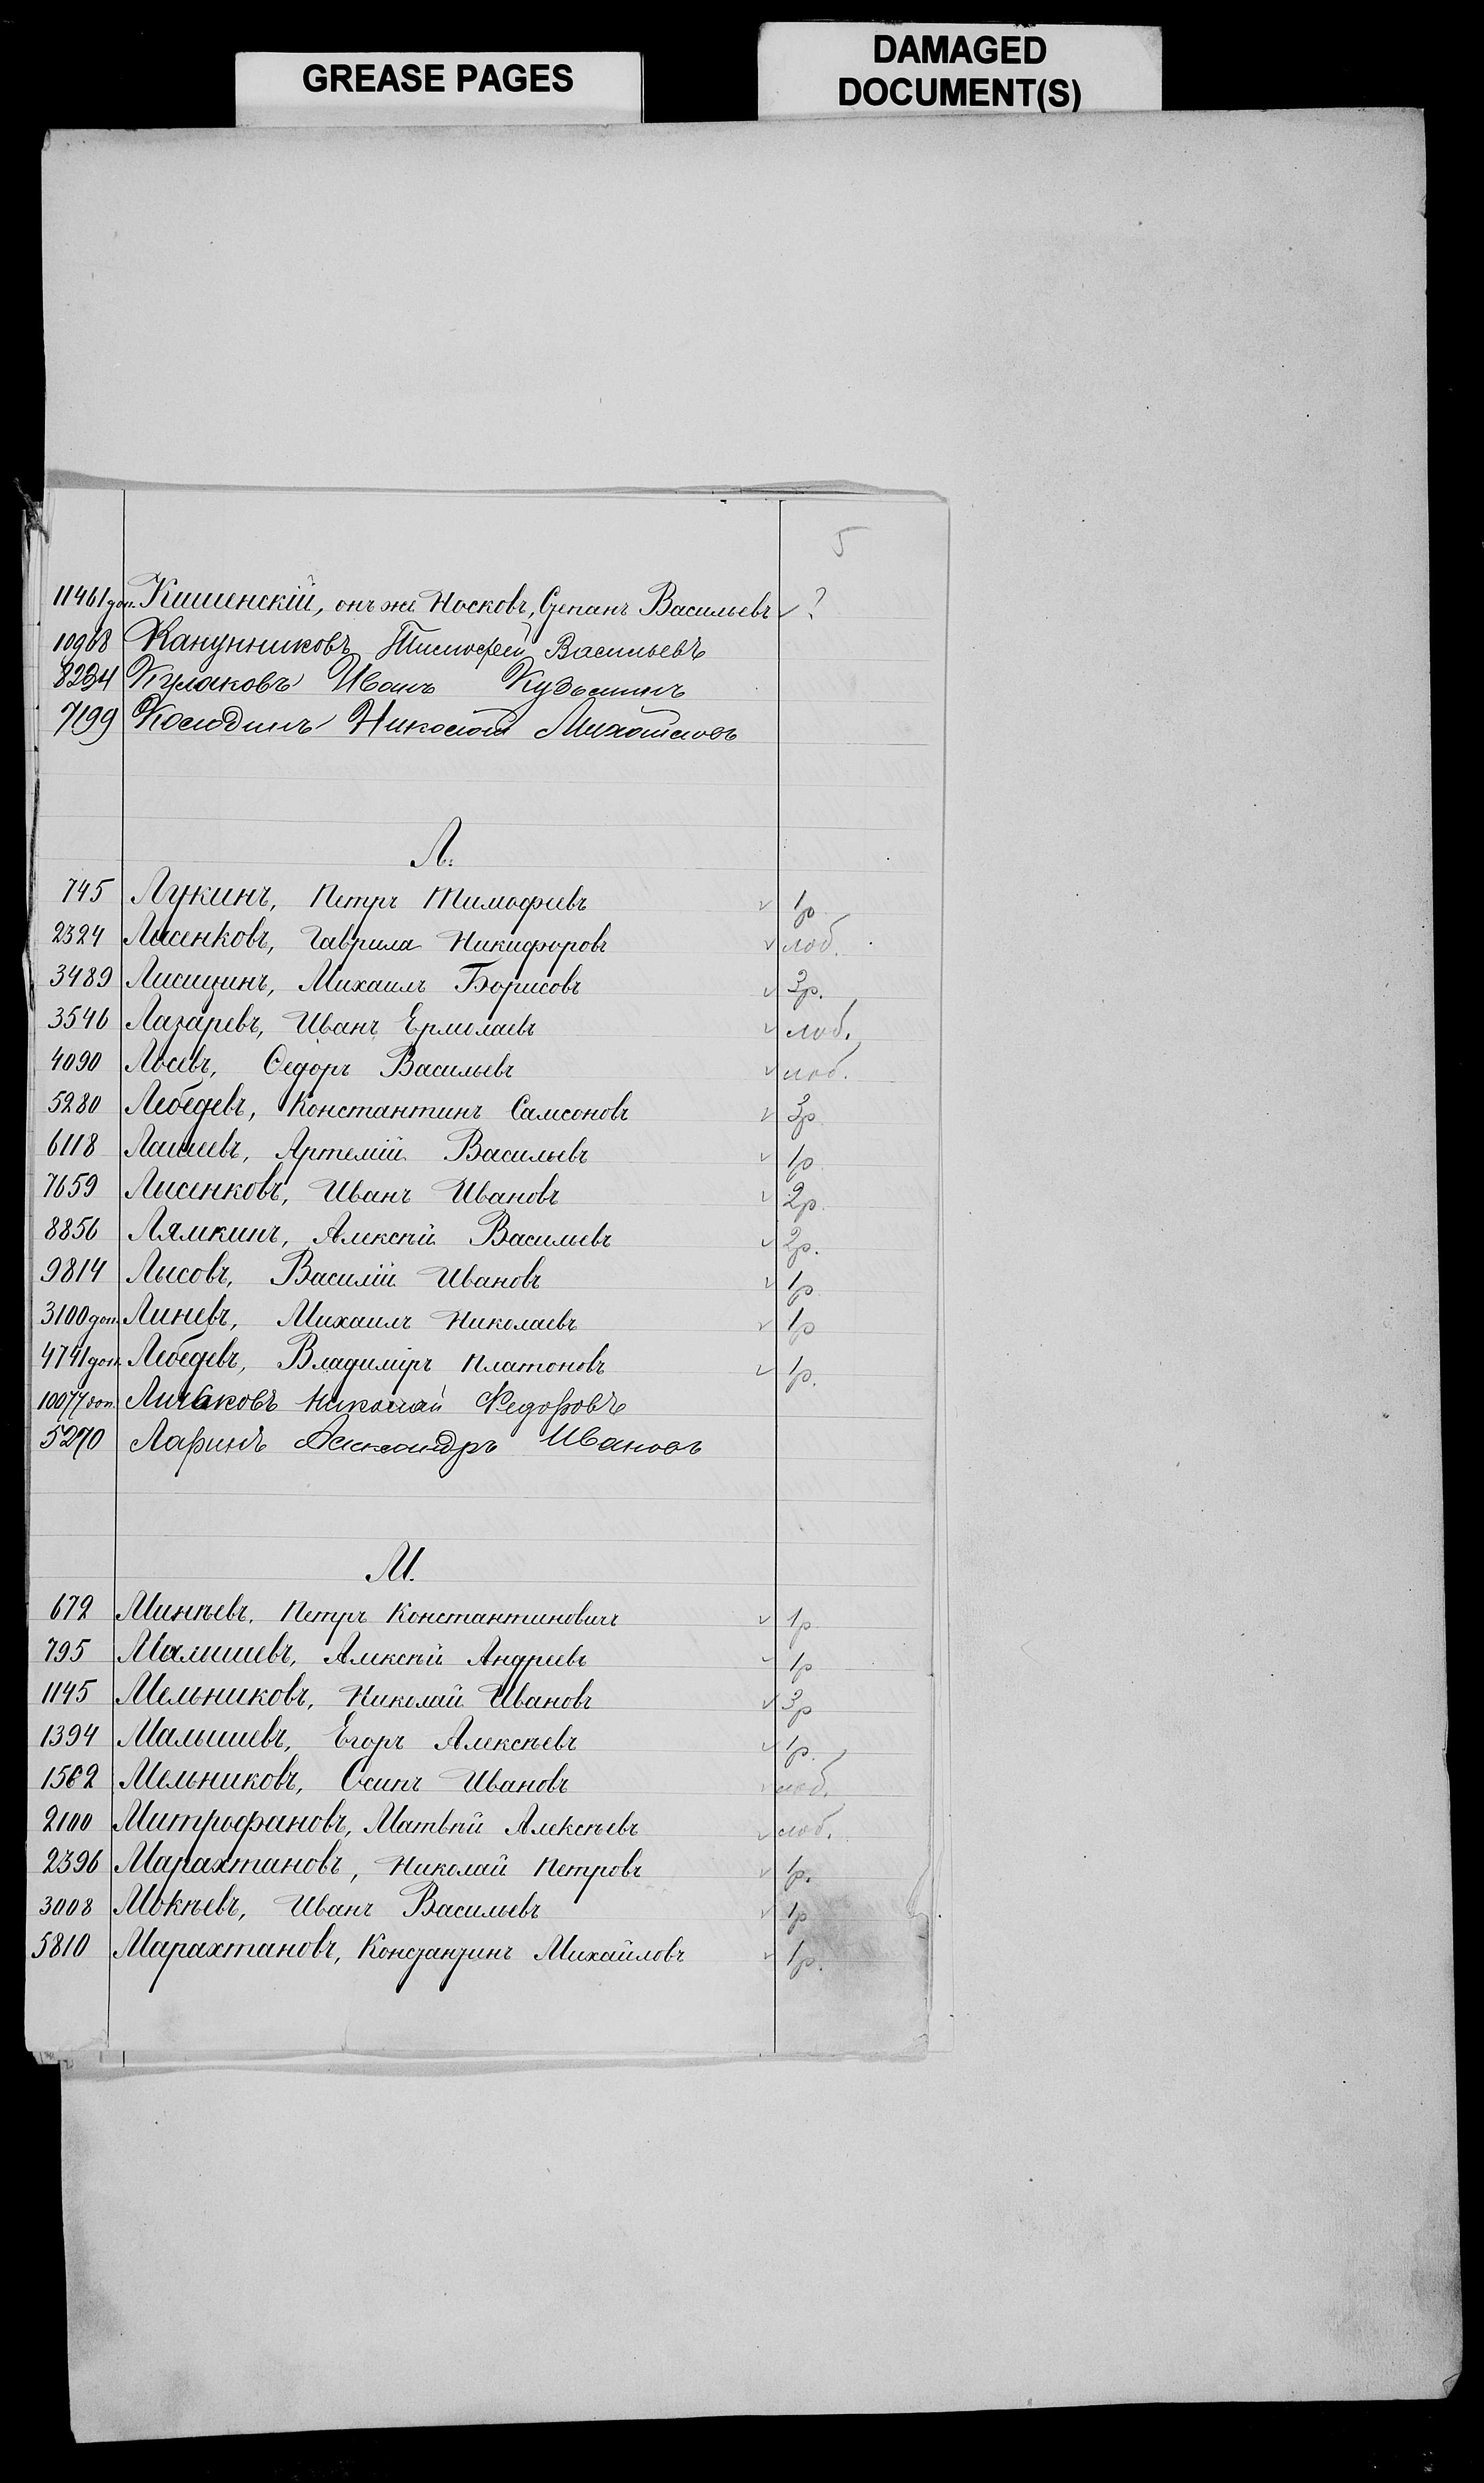 GREASE PAGES
DAMAGED
DOCUMENT(S)
5
11461 доп. Кишенскій, онъ же Носковъ, Степанъ Васильевъ ✓ ?
10968 Канунниковъ Тимофей Васильевъ
8234 Кулаковъ Иванъ Кузьминъ
7199 Николай Михайловъ
Л.
745 Лукинъ, Петръ Тимофеевъ ✓ 1р
2324 Лысенковъ, Гаврила Никифоровъ ✓ люб.
3489 Лисицинъ, Михаилъ Борисовъ ✓ 3р.
3546 Лазаревъ, Иванъ Ермолаевъ ✓ люб.
4090 Лосевъ, Ѳедоръ Васильевъ ✓ люб.
5280 Лебедевъ, Константинъ Самсоновъ ✓ 3р
6118 Лашеевъ, Артемій Васильевъ ✓ 1р
7659 Лысенковъ, Иванъ Ивановъ ✓ 2р.
8856 Лямкинъ, Алексѣй Васильевъ ✓ 2р.
9814 Лысовъ, Василій Ивановъ ✓ 1р
3100 доп. Линевъ, Михаилъ Николаевъ ✓ 1р
4741 доп. Лебедевъ, Владиміръ Платоновъ ✓ 1р.
10077 доп. Николай Федоровъ
5270 Ларинъ Александръ Ивановъ
М.
672 Минѣевъ, Петръ Константиновичъ ✓ 1р
795 Малышевъ, Алексѣй Андреевъ ✓ 1р
1145 Мельниковъ, Николай Ивановъ ✓ 3р
1394 Малышевъ, Егоръ Алексѣевъ ✓ 1р.
1562 Мельниковъ, Осипъ Ивановъ ✓ люб.
2100 Митрофановъ, Матвѣй Алексѣевъ ✓ люб.
2396 Марахтановъ, Николай Петровъ ✓ 1р.
3008 Мокѣевъ, Иванъ Васильевъ ✓ 1р
5810 Марахтановъ, Константинъ Михайловъ ✓ 1р.